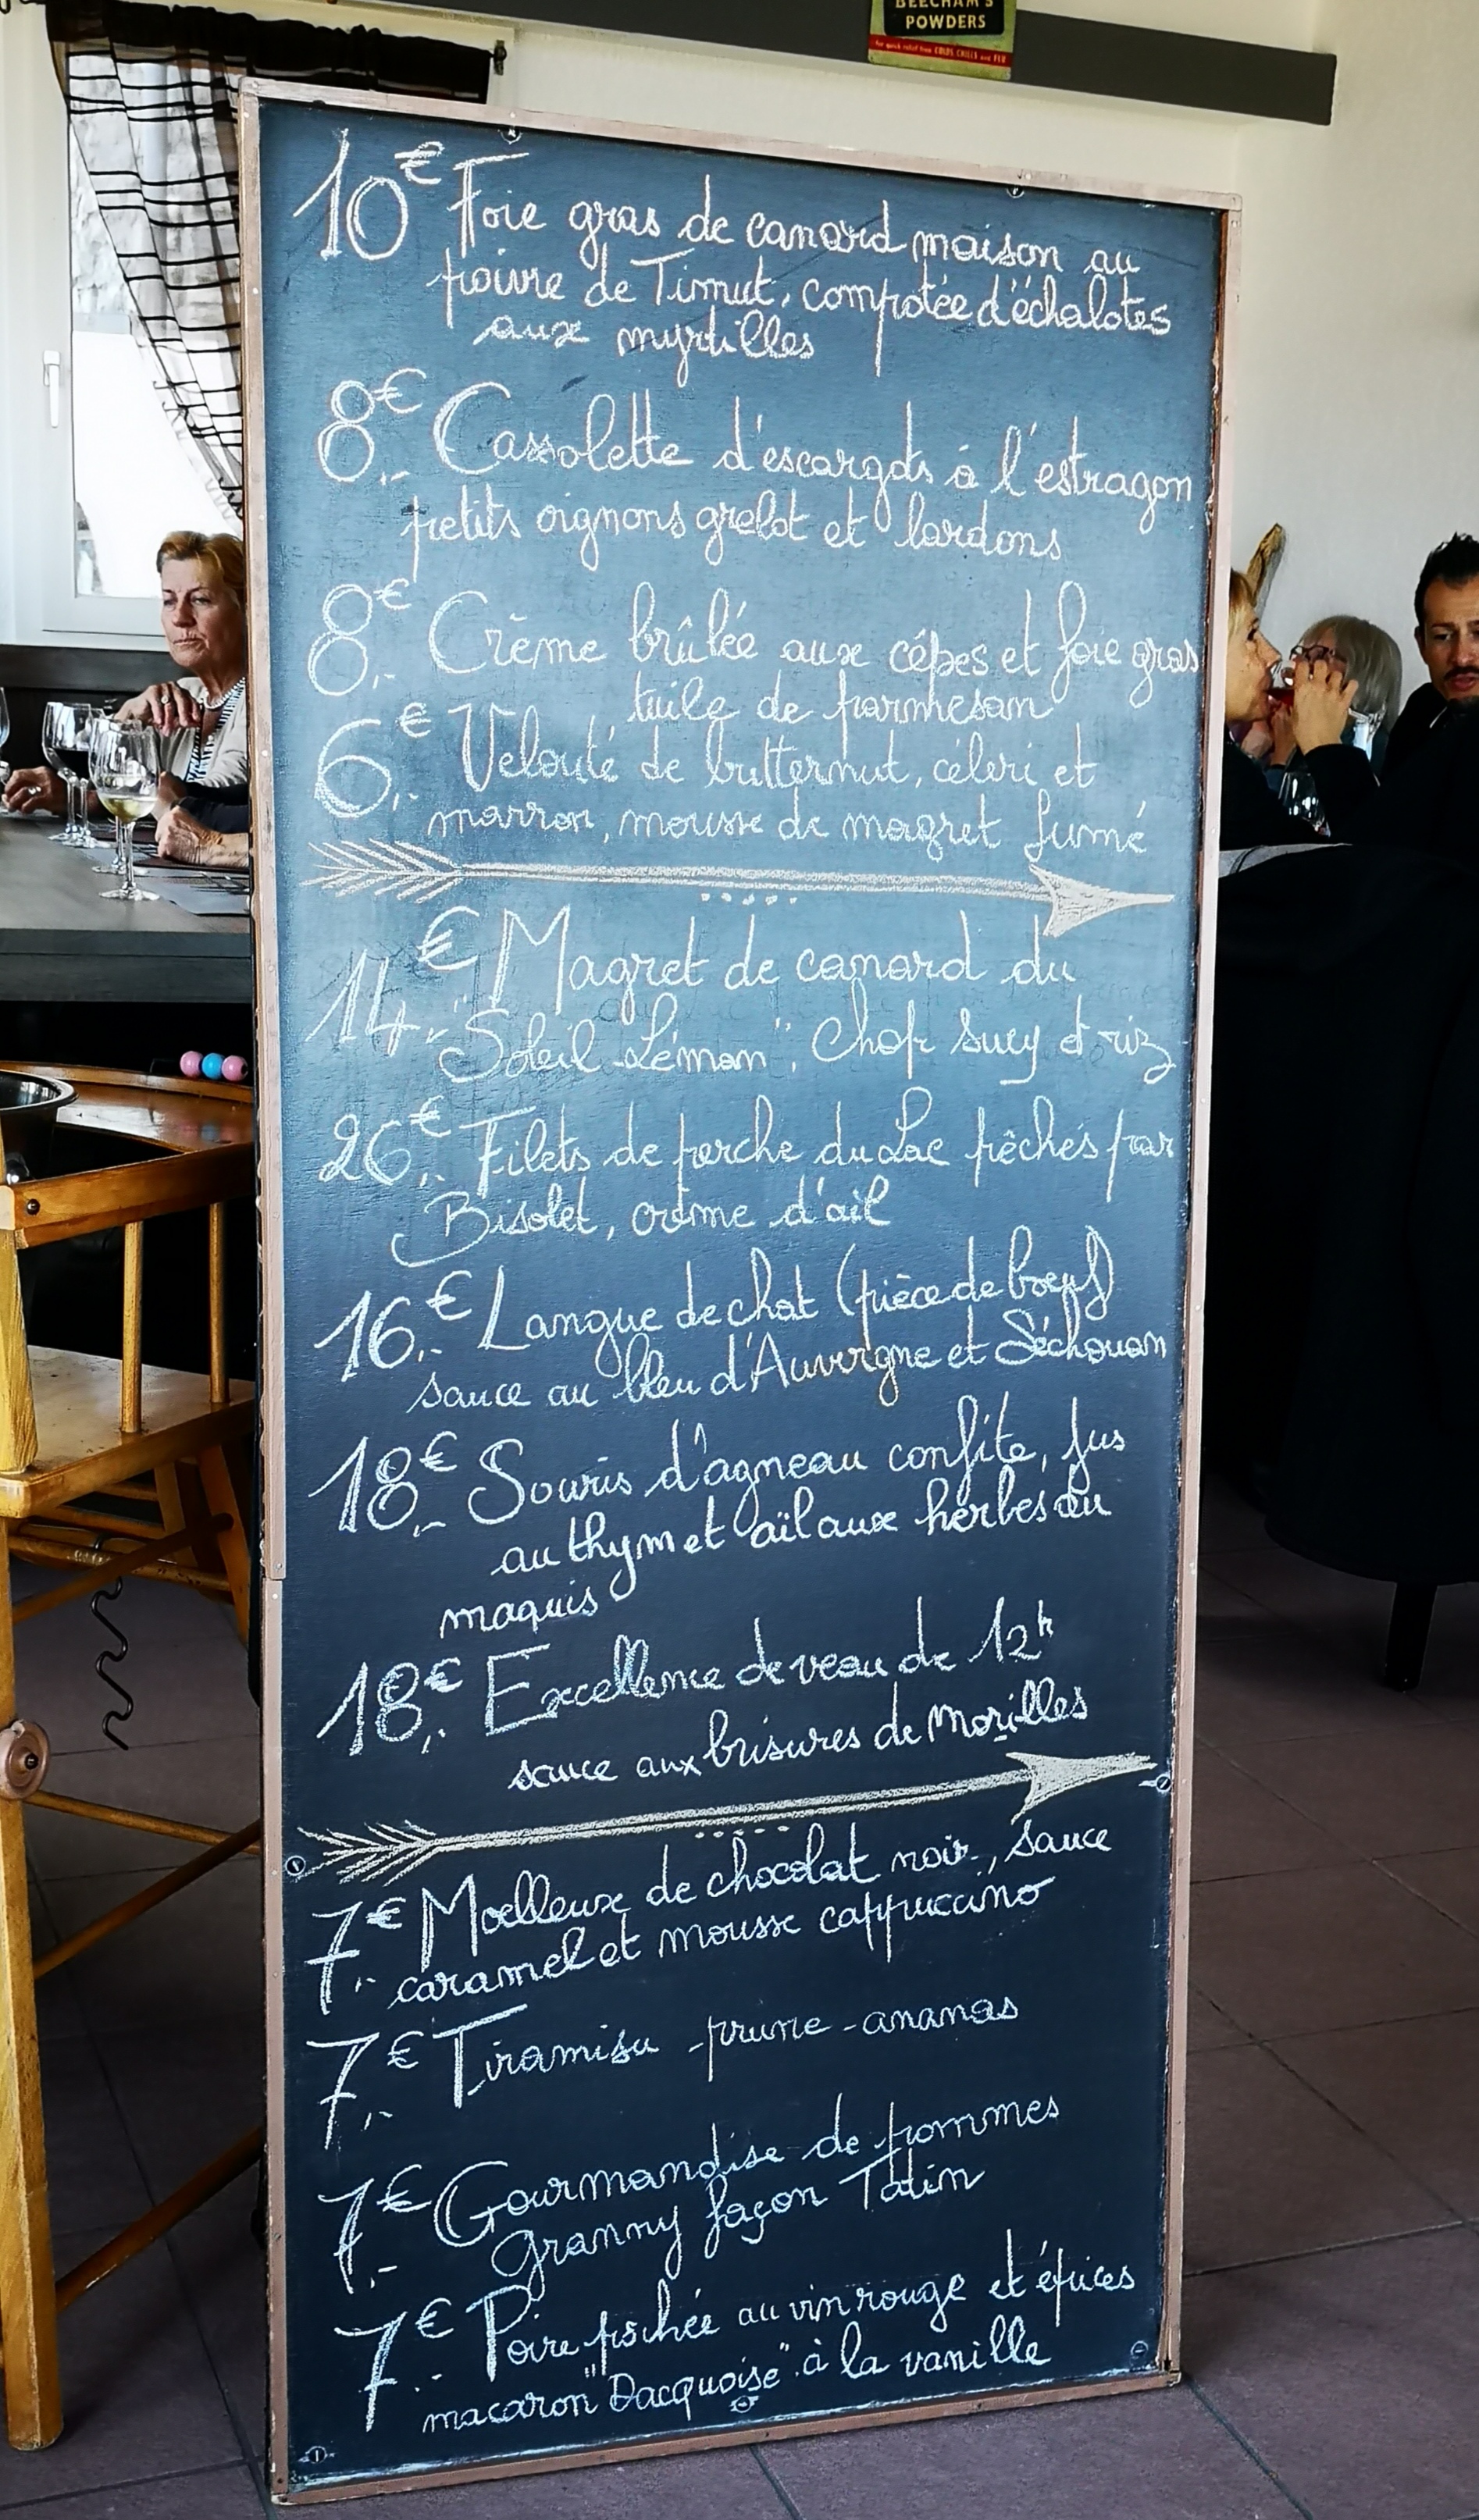 BEECHAM'S
POWDERS
for quick relief from COLDS, CHILLS and FLU
10€ Foie gras de canard maison au
poivre de Timut, compotée d'échalotes
aux myrtilles
8,-€ Cassolette d'escargots à l'estragon
petits oignons grelot et lardons
8,-€ Crème brûlée aux cépes et foie gras
tuile de parmesan
6,-€ Velouté de butternut, céleri et
marron, mousse de magret fumé
14,-€ Magret de canard du
"Soleil Léman", Chop Suey et riz
26,-€ Filets de perche du Lac pêchés par
Bisolet, crème d'ail
16,-€ Langue de chat (pièce de boeuf)
sauce au bleu d'Auvergne et Séchouan
18,-€ Souris d'agneau confite, jus
au thym et aïl aux herbes du
maquis
18,-€ Excellence de veau de 12h
sauce aux brisures de Morilles
7,-€ Moelleux de chocolat noir, sauce
caramel et mousse cappuccino
7,-€ Tiramisu -prune-ananas
7,-€ Gourmandise de pommes
Granny façon Tatin
7,-€ Poire pochée au vin rouge et épices
macaron "Dacquoise" à la vanille